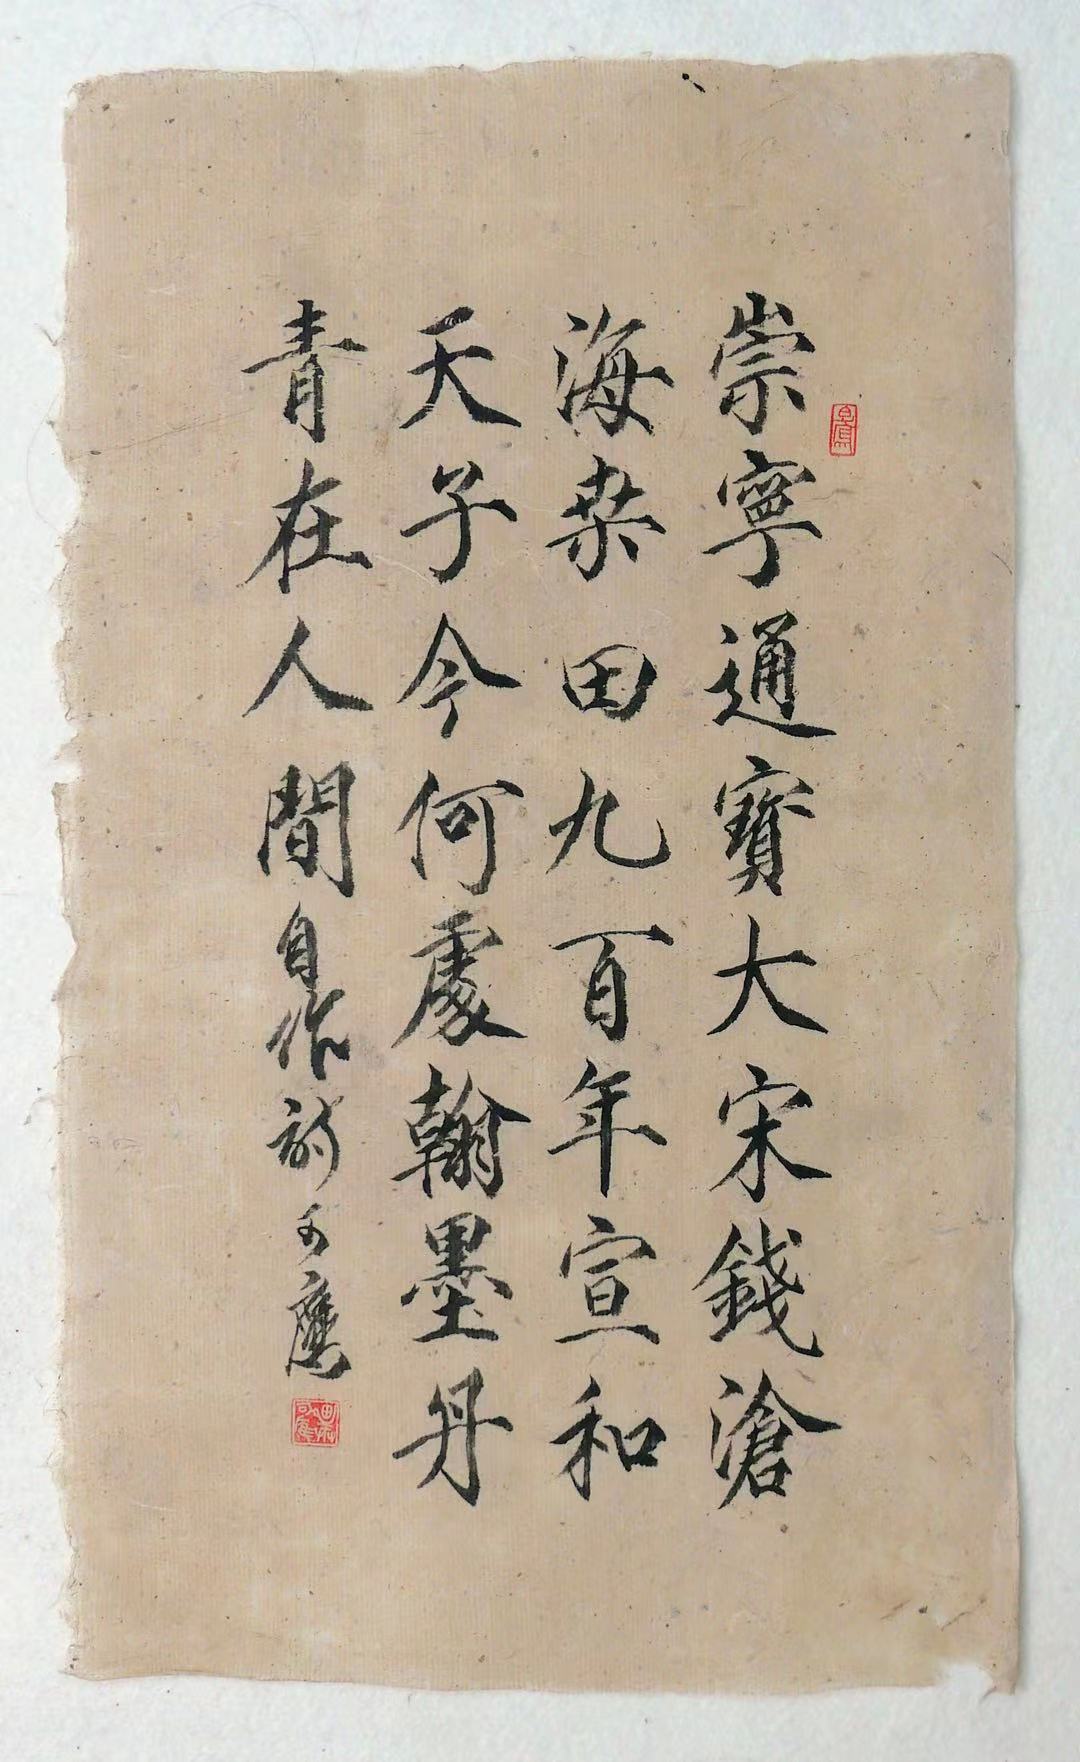 崇寧通寶大宋錢滄
海桒田九百年宣和
天子今何處翰墨丹
青在人間自作詩可鷹